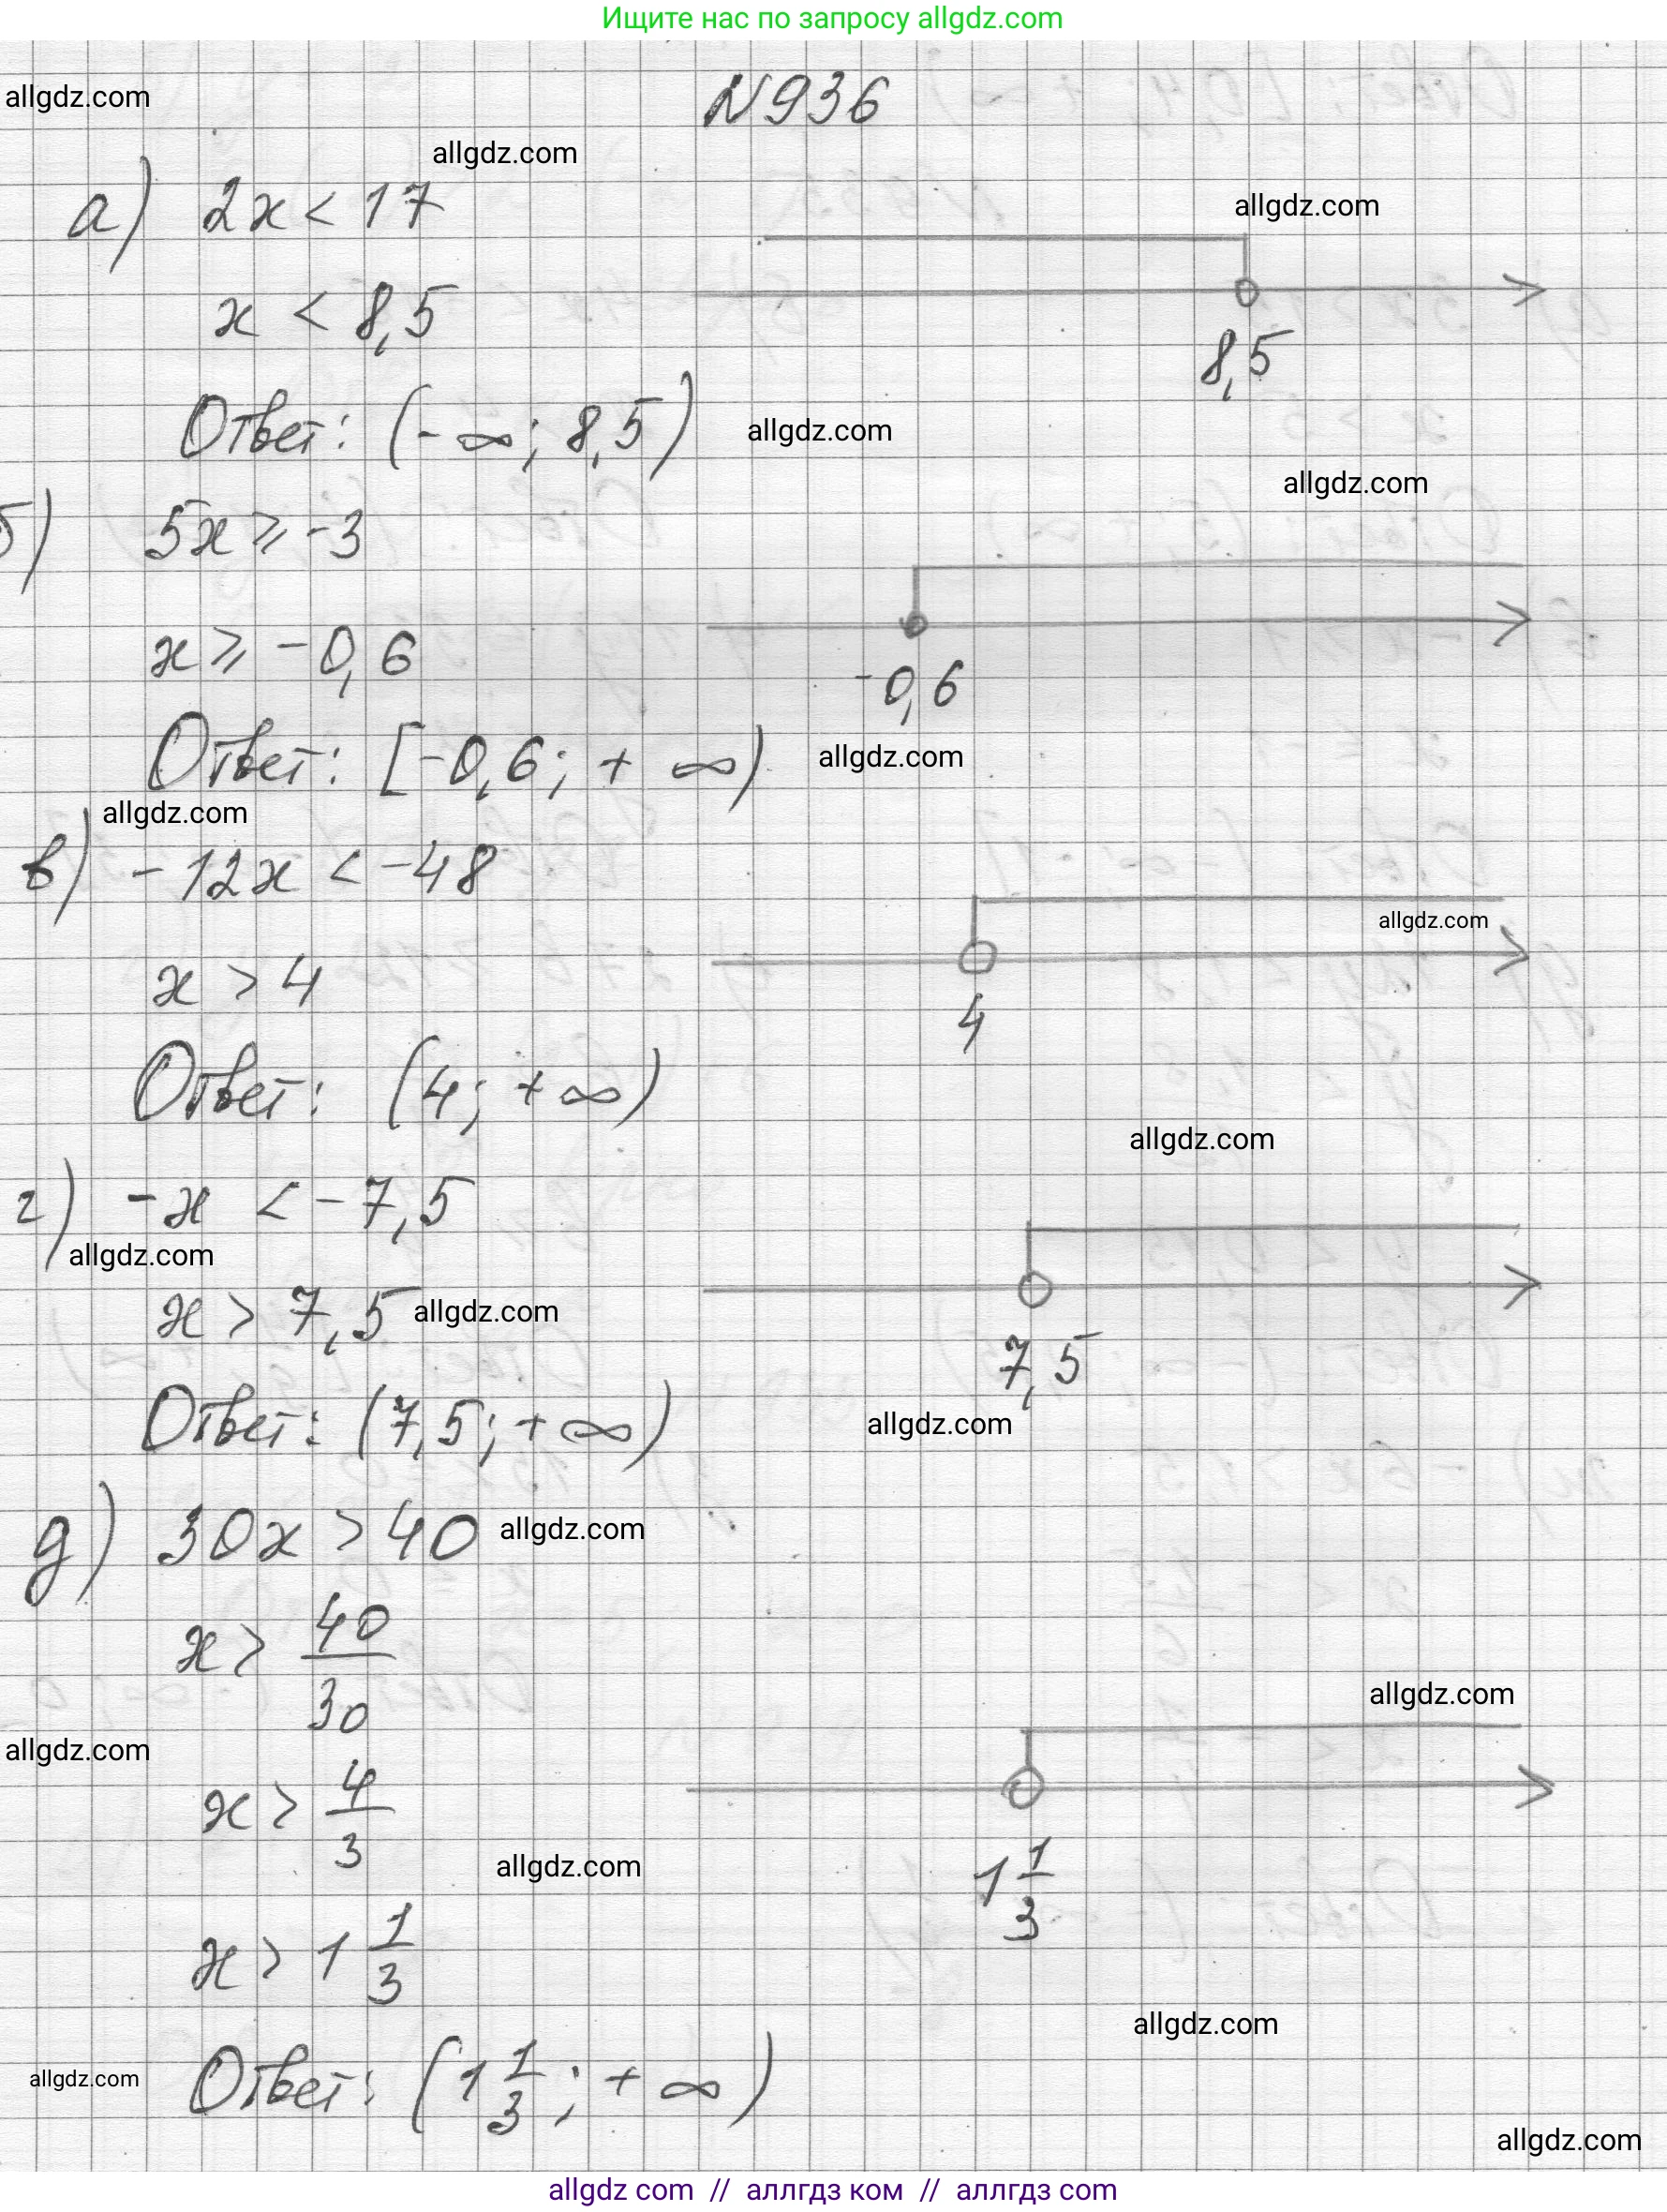 Ищите нас по запросу allgdz.com
allgdz.com
N936
allgdz.com
а) 2x < 17
allgdz.com
x < 8,5
8,5
Ответ: (-∞; 8,5)
allgdz.com
allgdz.com
б) 5x ⩾ -3
x ⩾ -0,6
-0,6
Ответ: [-0,6; + ∞)
allgdz.com
allgdz.com
в) -12x < -48
allgdz.com
x > 4
4
Ответ: (4; +∞)
allgdz.com
г) -x < -7,5
allgdz.com
x > 7,5
allgdz.com
7,5
Ответ: (7,5; +∞)
allgdz.com
д) 30x > 40
allgdz.com
x > 40/30
allgdz.com
allgdz.com
x > 4/3
allgdz.com
1 1/3
x > 1 1/3
allgdz.com
allgdz.com
Ответ: (1 1/3; + ∞)
allgdz.com
allgdz com // аллгдз ком // аллгдз com